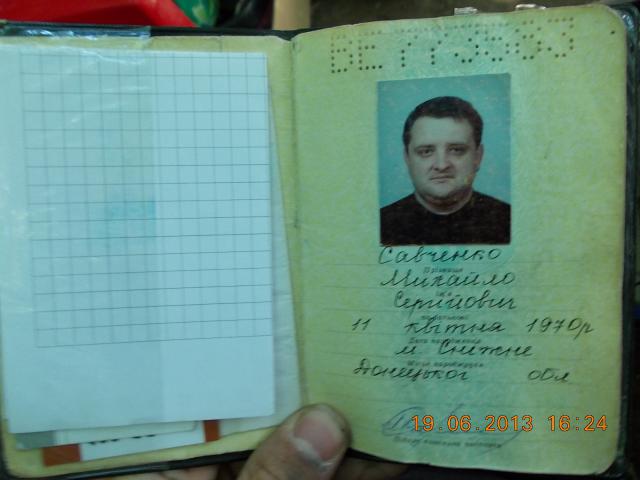 Савченко
Прізвище
Михайло
Ім'я
Сергійович
по батькові
11 квітня 1970р
Дата народження
м. Сніжне
Місце народження
Донецької обл
19.06.2013 16:24